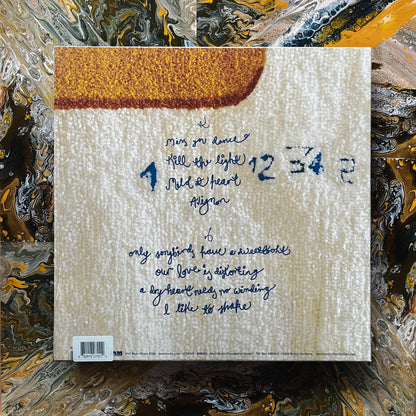 Miss you dance
Kill the light
Mild at heart
Avignon
1 12 34 2
only songbirds have a sweettooth
our love is distorting
a dry heart needs no winding
I like to shake